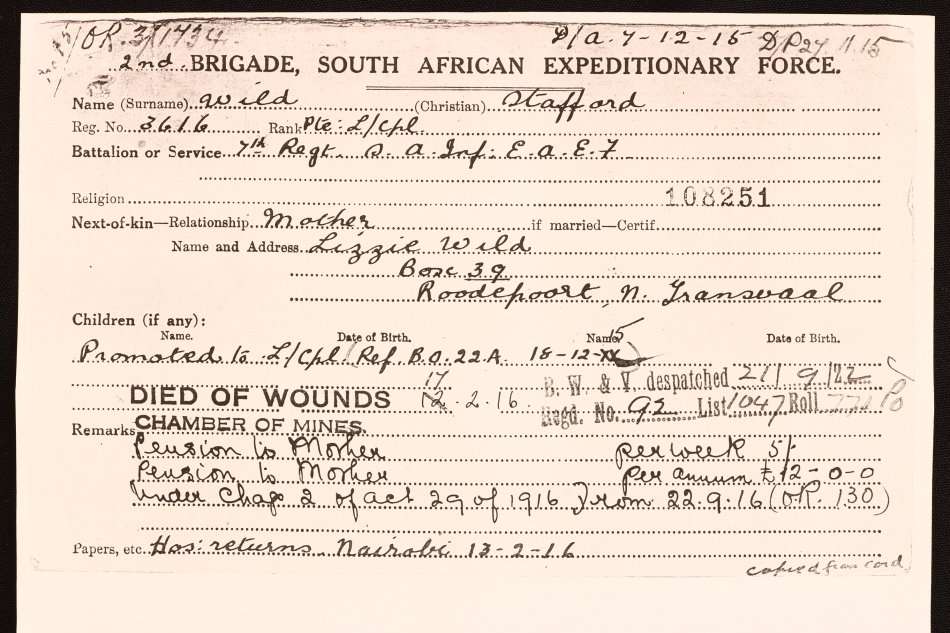 OR. 3/1734 P/a. 7-12-15 D/P 27.11.15
2nd. BRIGADE, SOUTH AFRICAN EXPEDITIONARY FORCE.
Name (Surname) Wild (Christian) Stafford
Reg. No. 3616 Rank Pte: L/Cpl.
Battalion or Service 7th Regt. S. A. Inf: E. A. E. F
Religion 108251
Next-of-kin—Relationship Mother if married—Certif.
Name and Address Lizzie Wild
Box 39
Roodepoort, N. Transvaal
Children (if any):
Name. Date of Birth. Name. Date of Birth.
Promoted to L/Cpl. Ref B.O. 22A 18-12-15
DIED OF WOUNDS 12.2.16 17
B. W. & V. despatched 21/9/22
Regd. No. 92 List 1047 Roll
Remarks CHAMBER OF MINES.
Pension to Mother per week 5/-
Pension to Mother per annum £12-0-0
Under Chap 2 of act 29 of 1916 } from 22.9.16 (OR. 130)
Papers, etc. Hos: returns Nairobi 13-2-16
copied from card